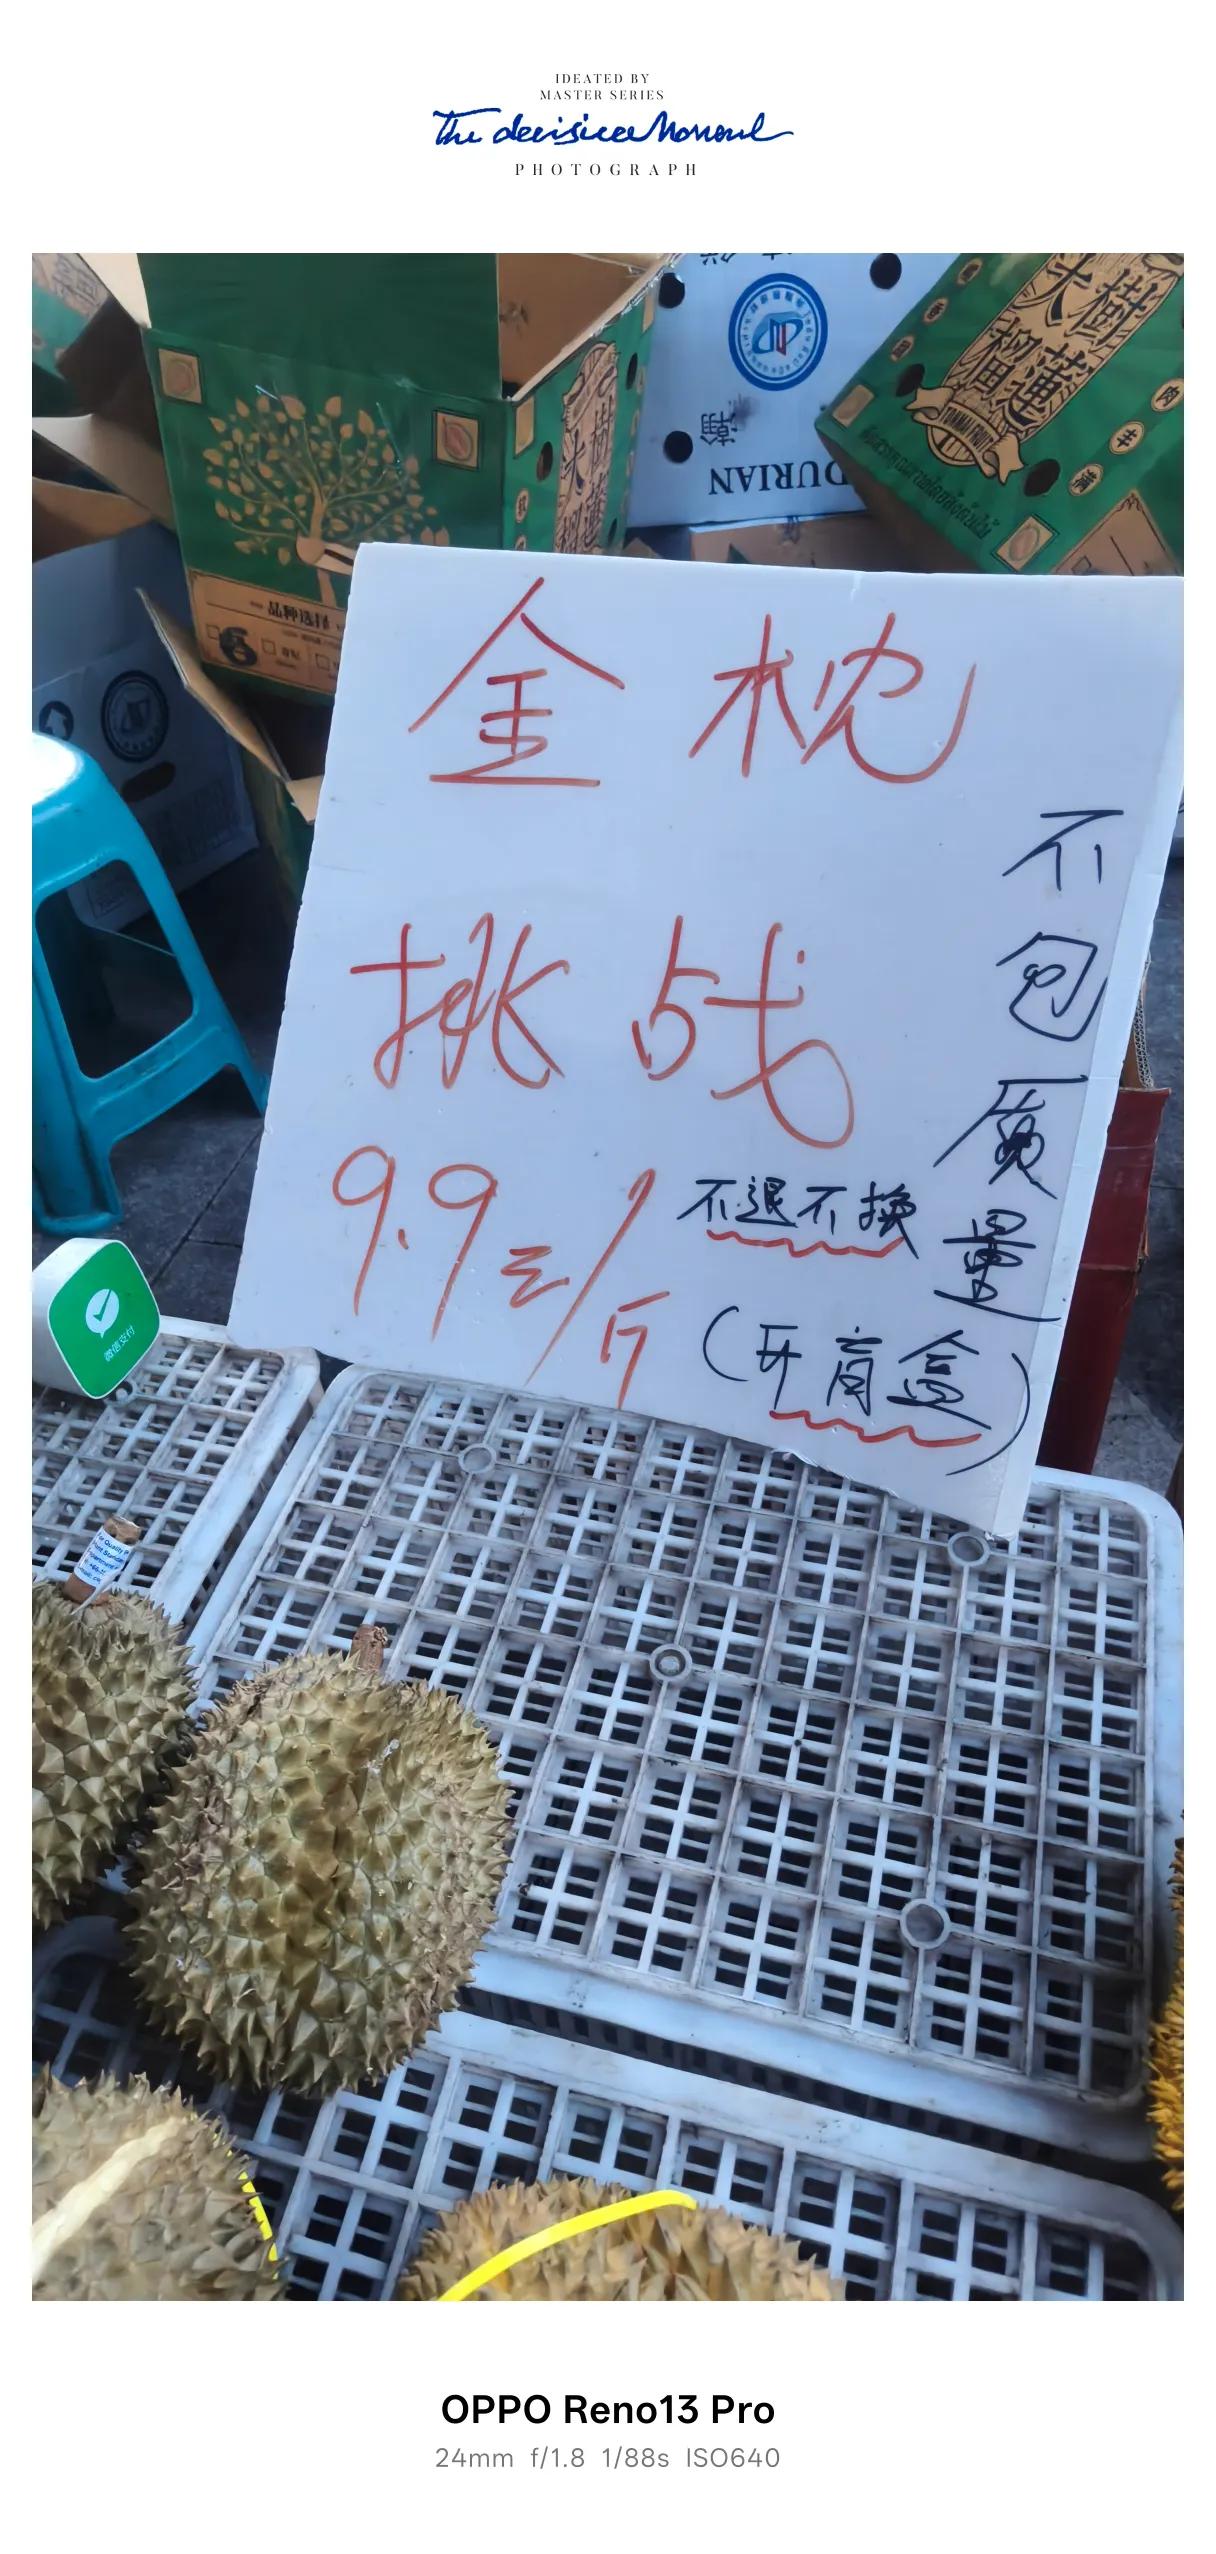 IDEATED BY
MASTER SERIES
The decisive Moment
PHOTOGRAPH
DURIAN
樹
榴蓮
品种选择
6
金枕
挑战
9.9元/斤
不包质量
不退不换
(开盲盒)
微信支付
OPPO Reno13 Pro
24mm f/1.8 1/88s ISO640